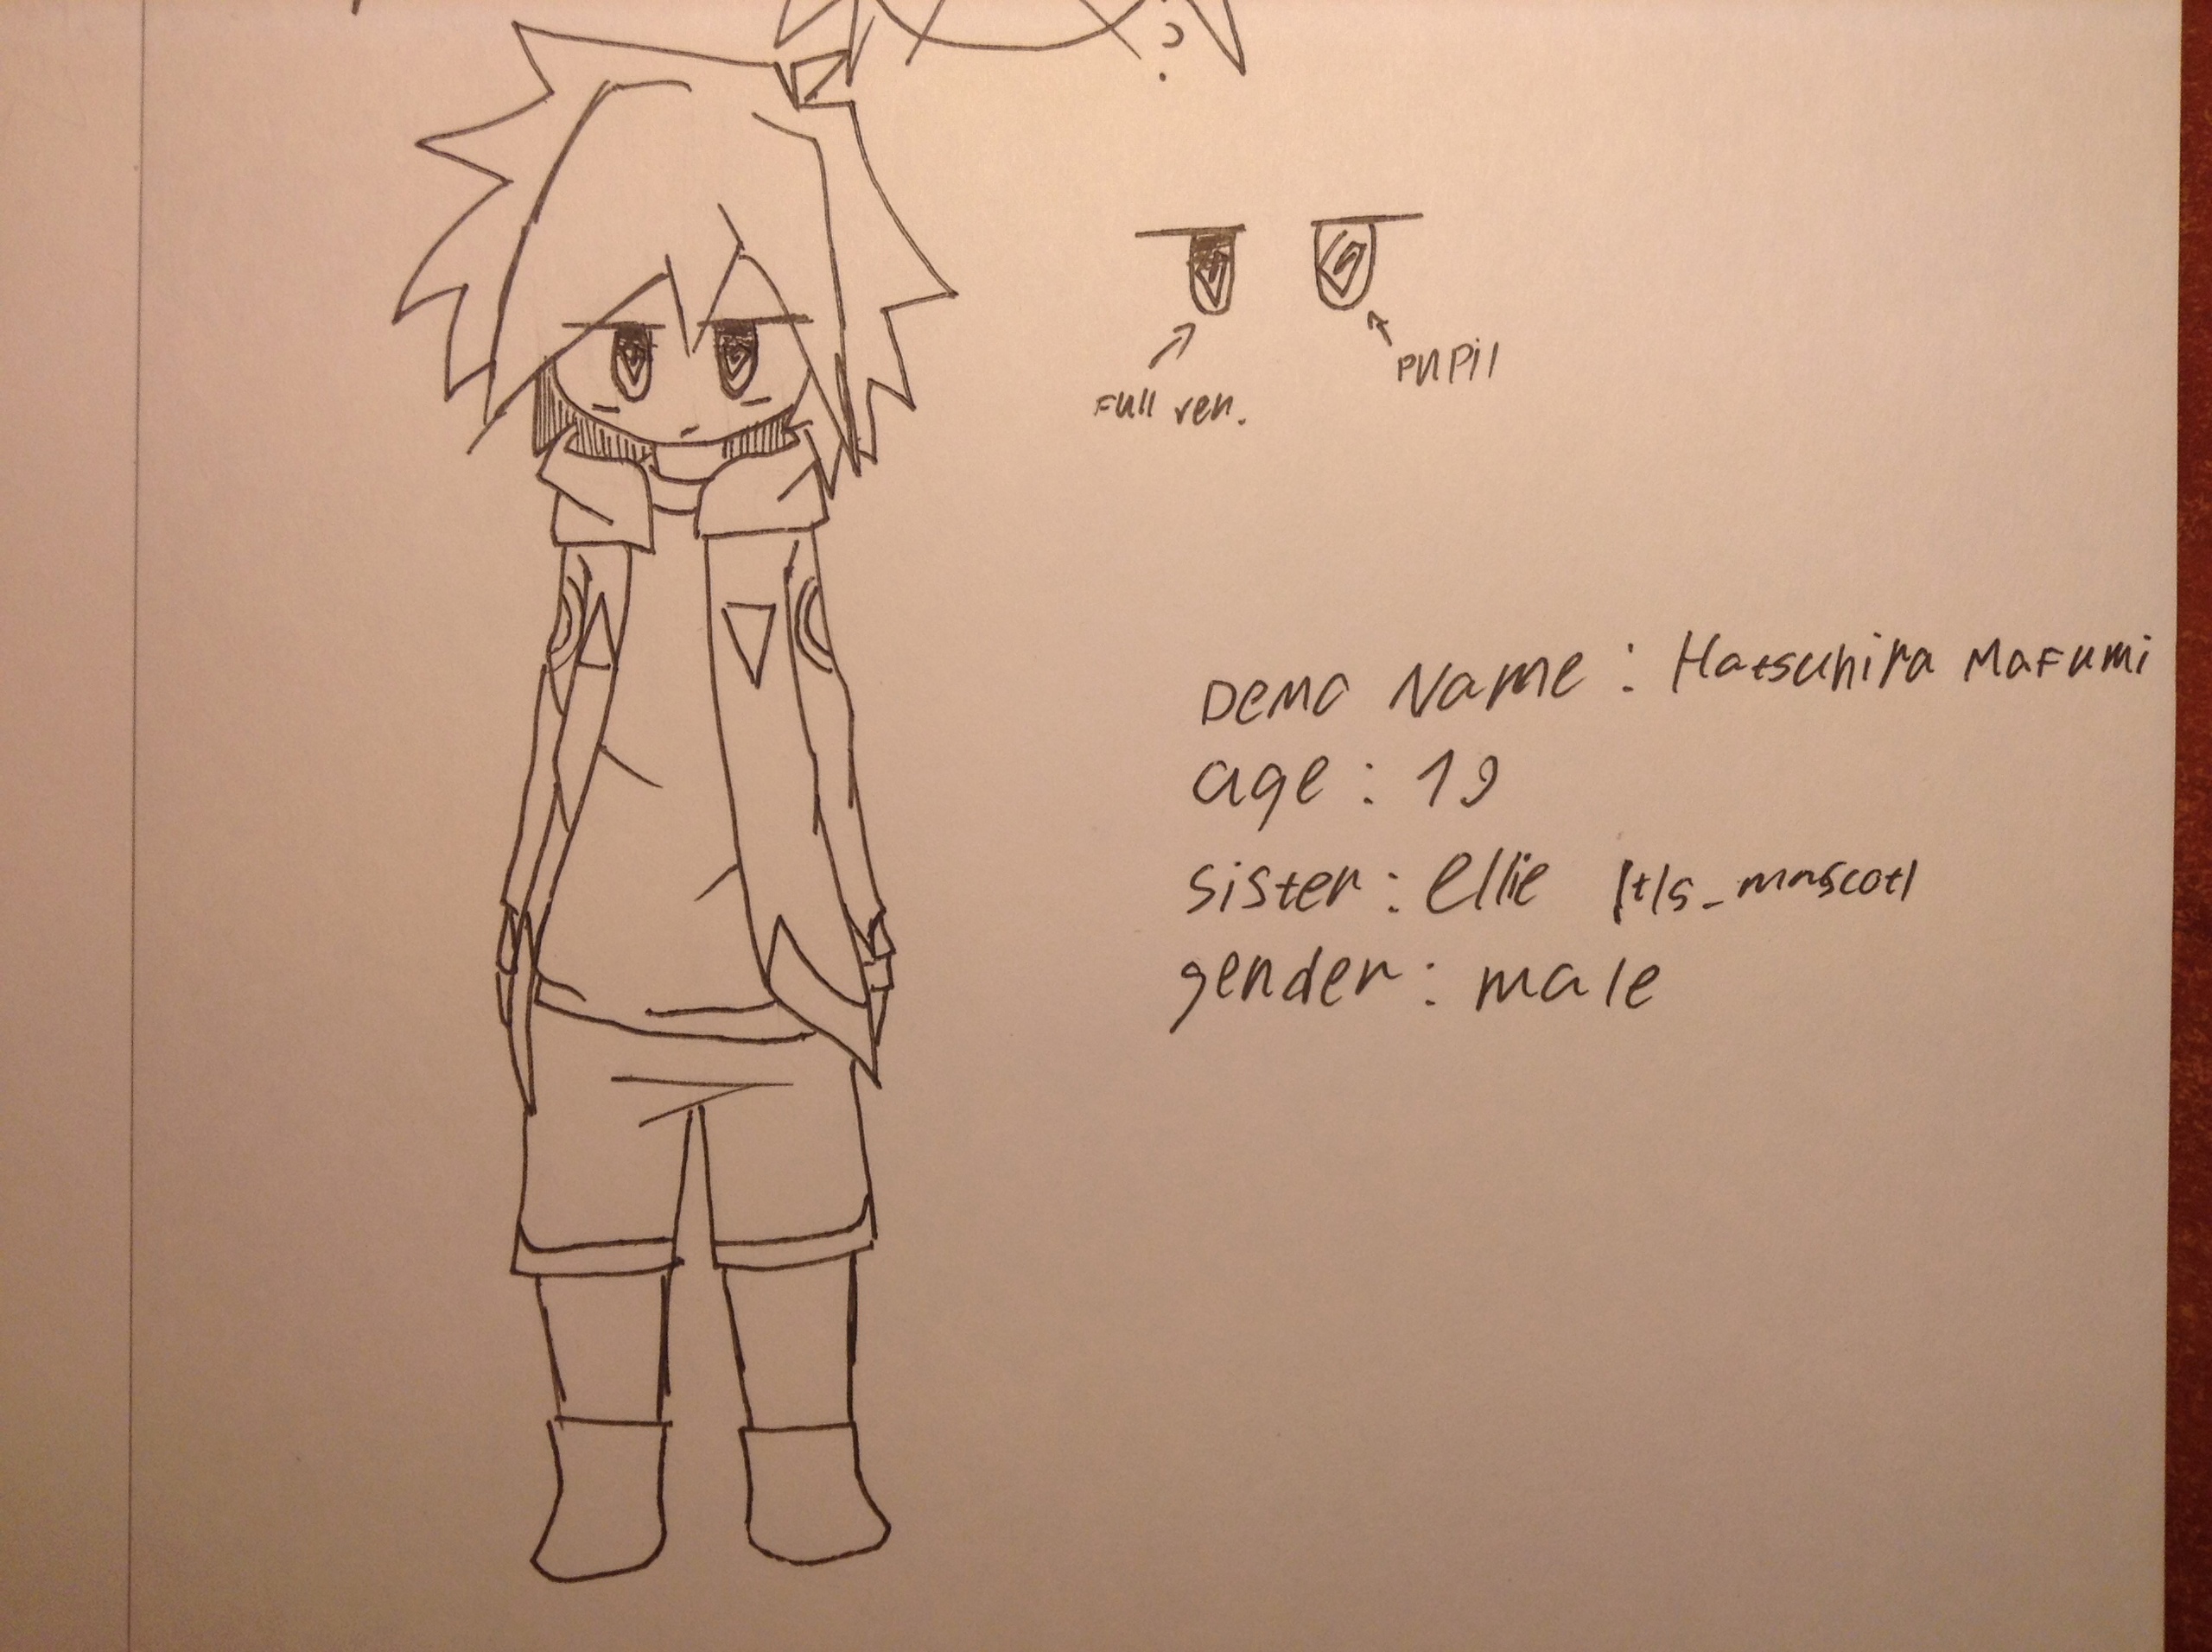 Full ver.
PUPil
Demo Name : Hatsuhira Mafumi
age : 19
sister : ellie
gender : male